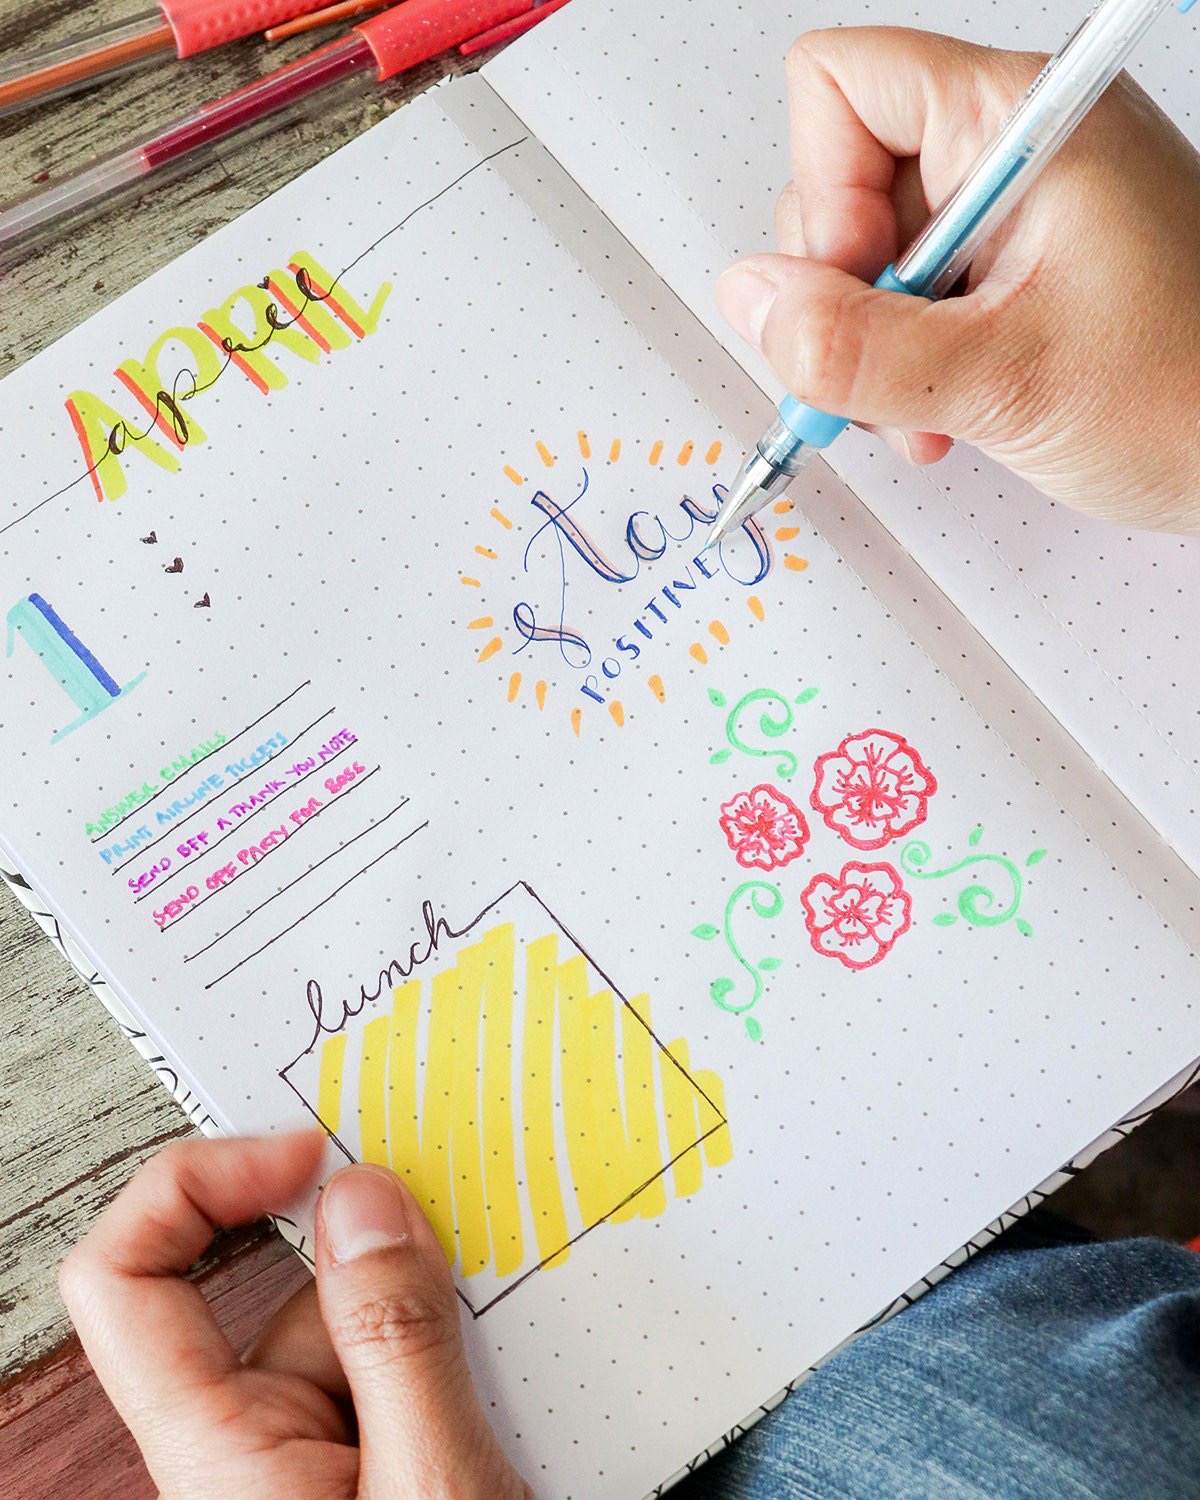 APRIL
april
1
ANSWER EMAILS
PRINT AIRLINE TICKETS
SEND BFF A THANK YOU NOTE
SEND OFF PARTY FOR BOSS
stay
POSITIVE
lunch